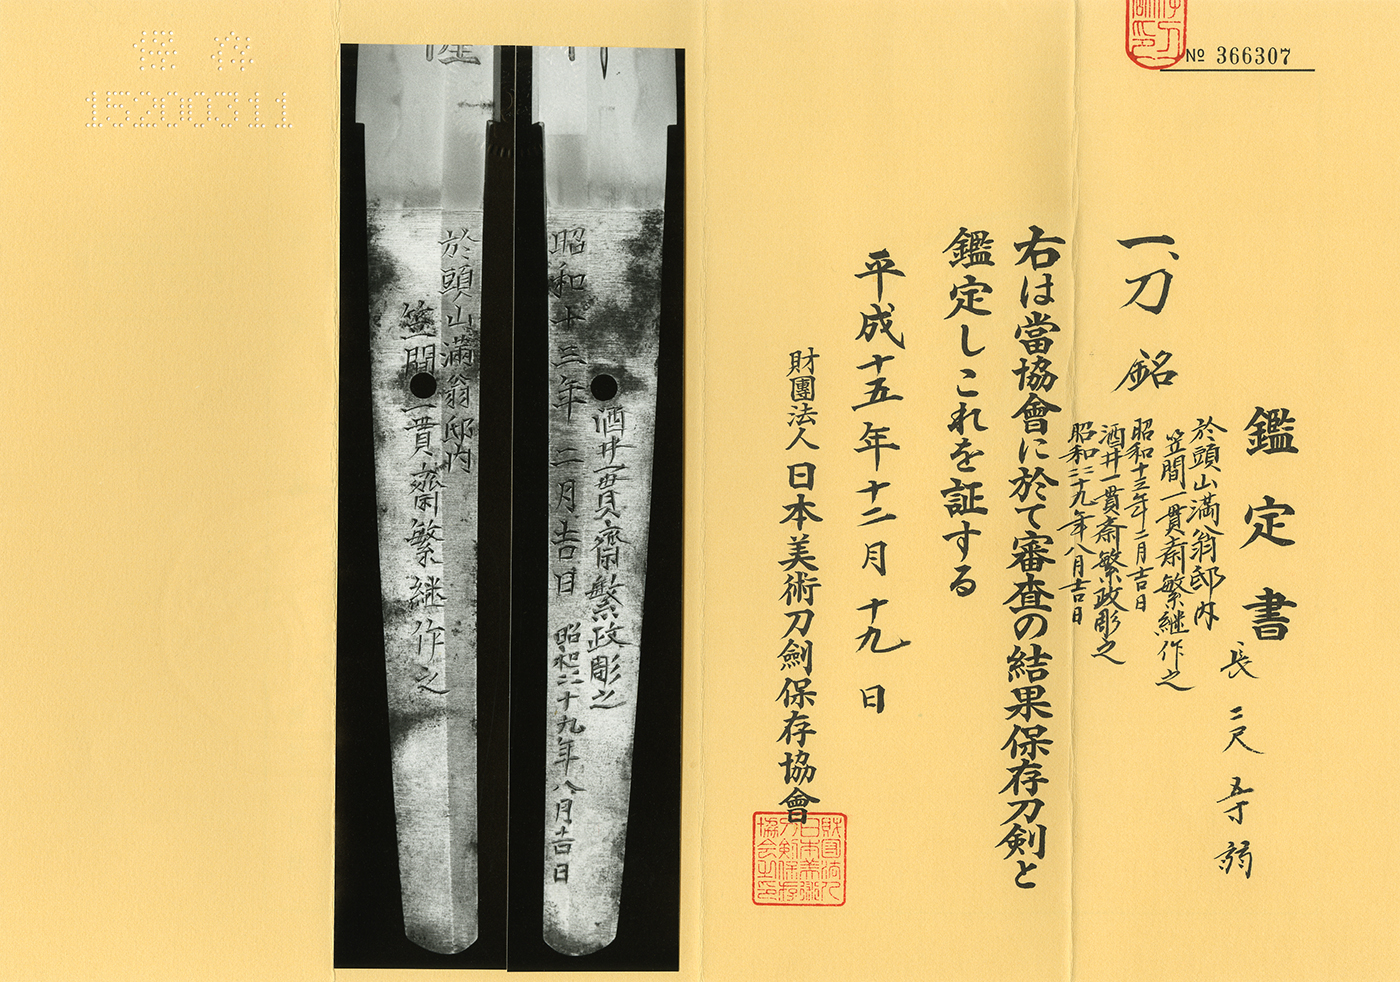 № 366307
鑑定書
一、刀 銘
於頭山満翁邸内
笠間一貫斎繁継作之
昭和十三年二月吉日
酒井一貫斎繁政彫之
昭和二十九年八月吉日
長 二尺 五寸 弱
右は當協會に於て審査の結果保存刀剣と
鑑定しこれを証する
平成十五年十二月十九日
財團法人 日本美術刀劍保存協會
昭和十三年二月吉日
酒井一貫齋繁政彫之
昭和二十九年八月吉日
於頭山滿翁邸内
笠間一貫齋繁継作之
保存
15200311